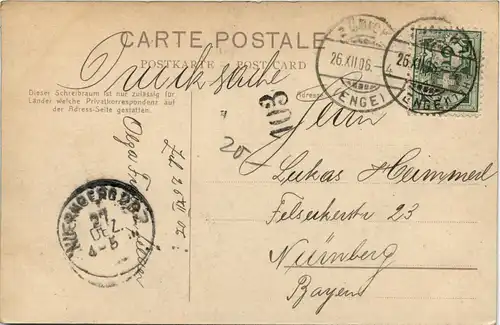 CARTE POSTALE
POSTKARTE POST CARD
Drucksache
Dieser Schreibraum ist nur zulässig für
Länder welche Privatkorrespondenz auf
der Adress-Seite gestatten.
ZÜRICH
26.XII.06.
(ENGE)
26.XII.06.
(ENGE)
103
20
Adresse
Herrn
Lukas Heimmerl
Felseckerstr 23
Nürnberg
Bayern
Olga
NUERNBERG
27
DEZ
4-5